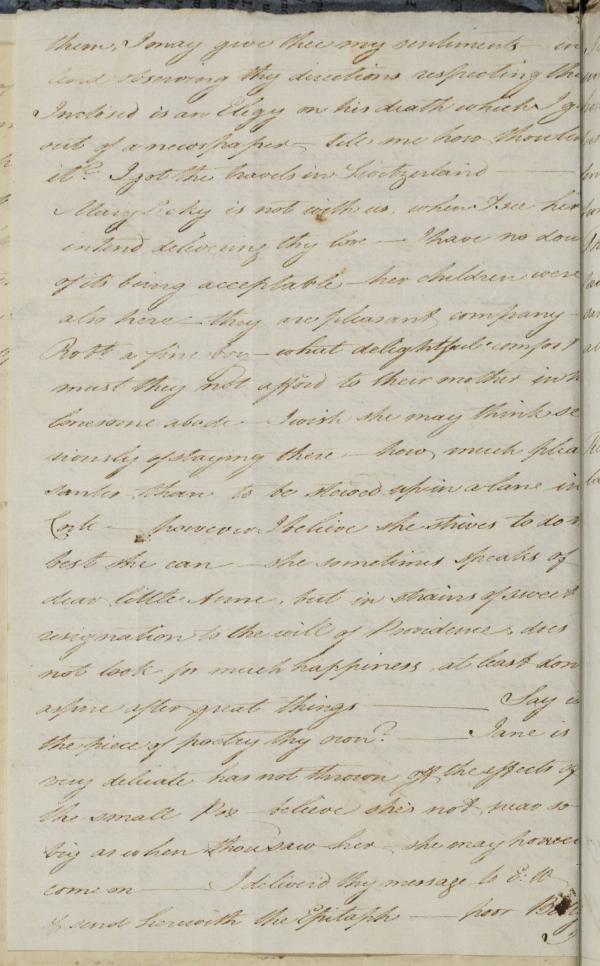 them, I may give thee my sentiments in
observing thy directions respecting the
Inclosed is an Elegy on his death which I g
out of a newspaper – tell me how thou li
it? I got the travels in Switzerland ——
Mary Lecky is not with us, when I see her
intend delivering thy love — I have no dou
of its being acceptable – her children were
also here – they are pleasant company –
Robt. a fine boy – what delightful comfort
must they not afford to their mother in h
lonesome abode – I wish she may think se
riously of staying there – how much plea
santer than to be stowed up in a lane in
Cork – however I believe she strives to do
best she can – she sometimes speaks of
dear little Anne, but in strains of sweet
resignation to the will of Providence, does
not look for much happiness, at least don
aspire after great things —— Say is
the piece of poetry thy own? —— Jane is
very delicate has not thrown off the effects of
the small Pox – believe she's not near so
big as when thou saw her – she may howe
come on —— I deliver'd thy message to E: W
& send herewith the Epitaph —— poor